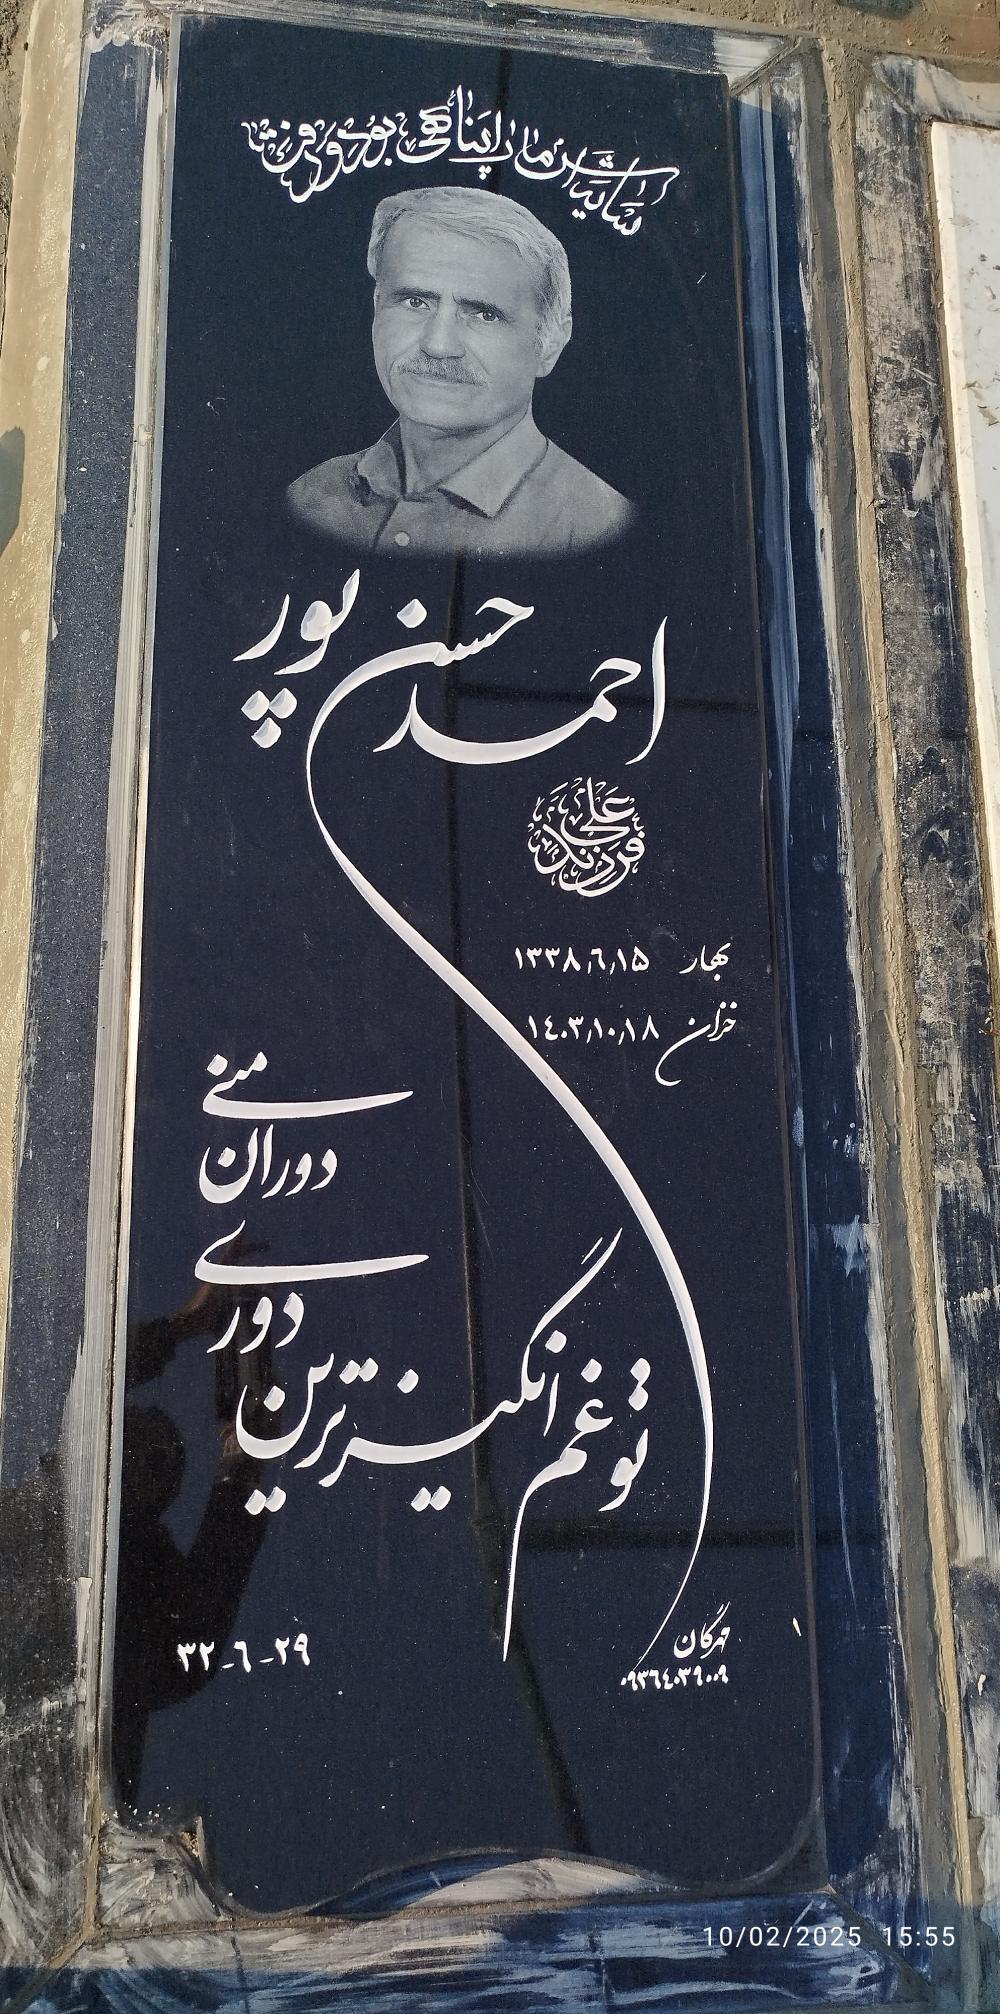 سایه اش ما را پناهی بود و رفت
احمد حسن پور
فرزند علی
بهار ۱۳۳۸٫۶٫۱۵
خزان ۱۴۰۳٫۱۰٫۱۸
تو غم انگیزترین
دوری
دوران
منی
۳۲-۶-۲۹
مهرگان
۰۹۳۶۴۰۳۹۰۰۹
10/02/2025 15:55